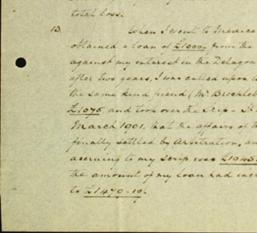 total loss.
13. When I went to America
obtained a loan of £1000 from the
against my interest in the Delagoa
after two years, I was called upon to
the same kind friend (Mr
£1075 and took over the Scrip -
March 1901, that the affairs of the
finally settled by Arbitration, and
accruing to my Scrip was £1945
the amount of my loan had incr
to £1470-19